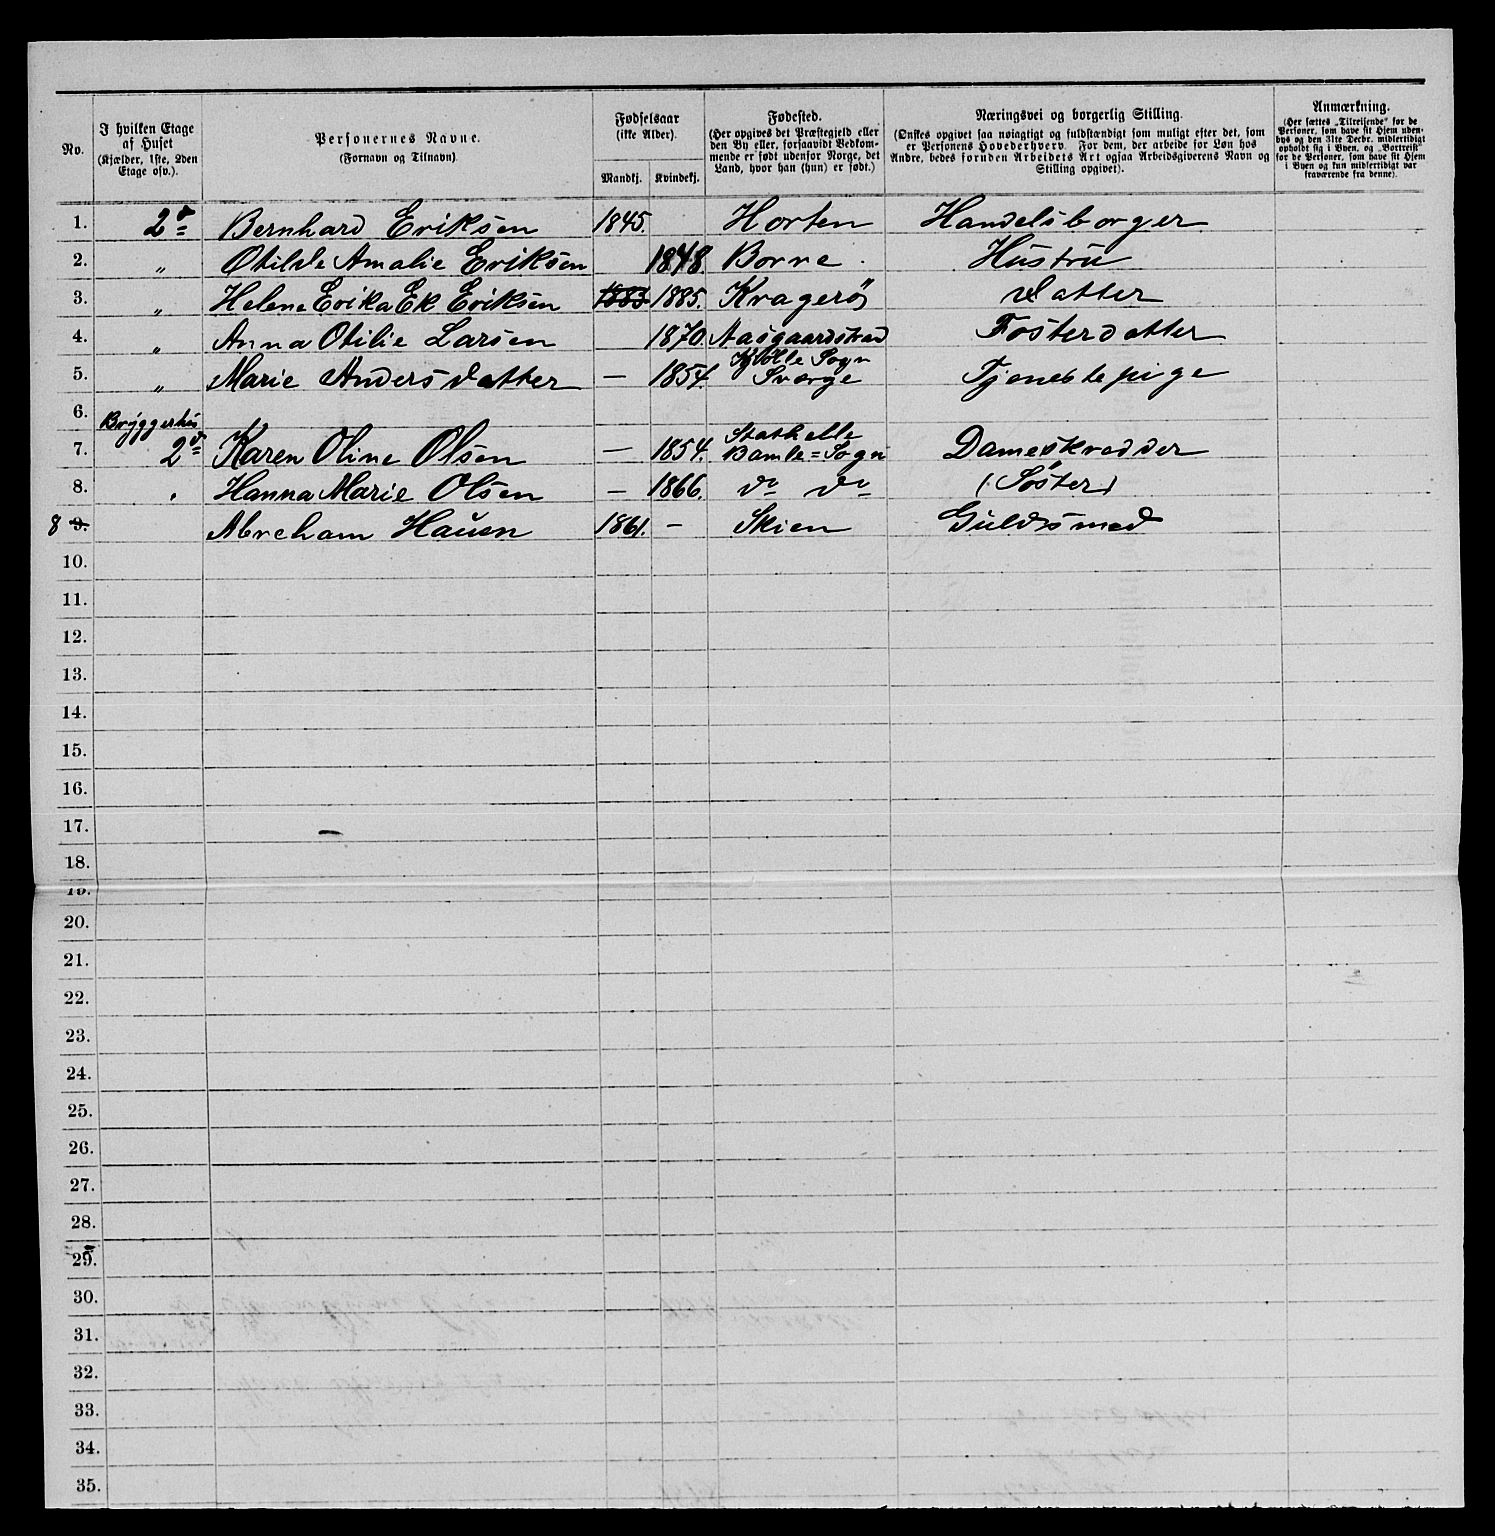 No.
I hvilken Etage af Huset (Kjælder, 1ste, 2den Etage osv.).
Personernes Navne. (Fornavn og Tilnavn).
Fødselsaar (ikke Alder).
Mandkj. Kvindekj.
Fødested. (Her opgives det Præstegjeld eller den By eller, forsaavidt Vedkommende er født udenfor Norge, det Land, hvor han (hun) er født.)
Næringsvei og borgerlig Stilling. (Ønskes opgivet saa nøiagtigt og fuldstændigt som muligt efter det, som er Personens Hovederhverv. For dem, der arbeide for Løn hos Andre, bedes foruden Arbeidets Art ogsaa Arbeidsgiverens Navn og Stilling opgivet).
Anmærkning. (Her sættes „Tilreisende" for de Personer, som have sit Hjem udenbys og den 31te Decbr. midlertidigt opholdt sig i Byen, og „Bortreist" for de Personer, som have sit Hjem i Byen og kun midlertidigt var fraværende fra denne).
1. 2d Bernhard Eriksen 1845. Horten Handelsborger
2. „ Otilde Amalie Eriksen 1848 Borre Hustru
3. „ Helene Erika Ek Eriksen 1883 1885. Kragerö Datter
4. „ Anna Otilie Larsen 1870. Aasgaardstrand Fosterdatter
5. „ Marie Andersdatter — 1854. Sogn Sverge Tjenestepige
6.
Bryggerhus
7. 2d Karen Oline Olsen — 1854. Stathelle Bamle=Sogn Dameskredder
8. „ Hanna Marie Olsen — 1866. do do (Søster)
8 9. Abreham Hauen 1861. — Skien Guldsmed
10.
11.
12.
13.
14.
15.
16.
17.
18.
19.
20.
21.
22.
23.
24.
25.
26.
27.
28.
29.
30.
31.
32.
33.
34.
35.